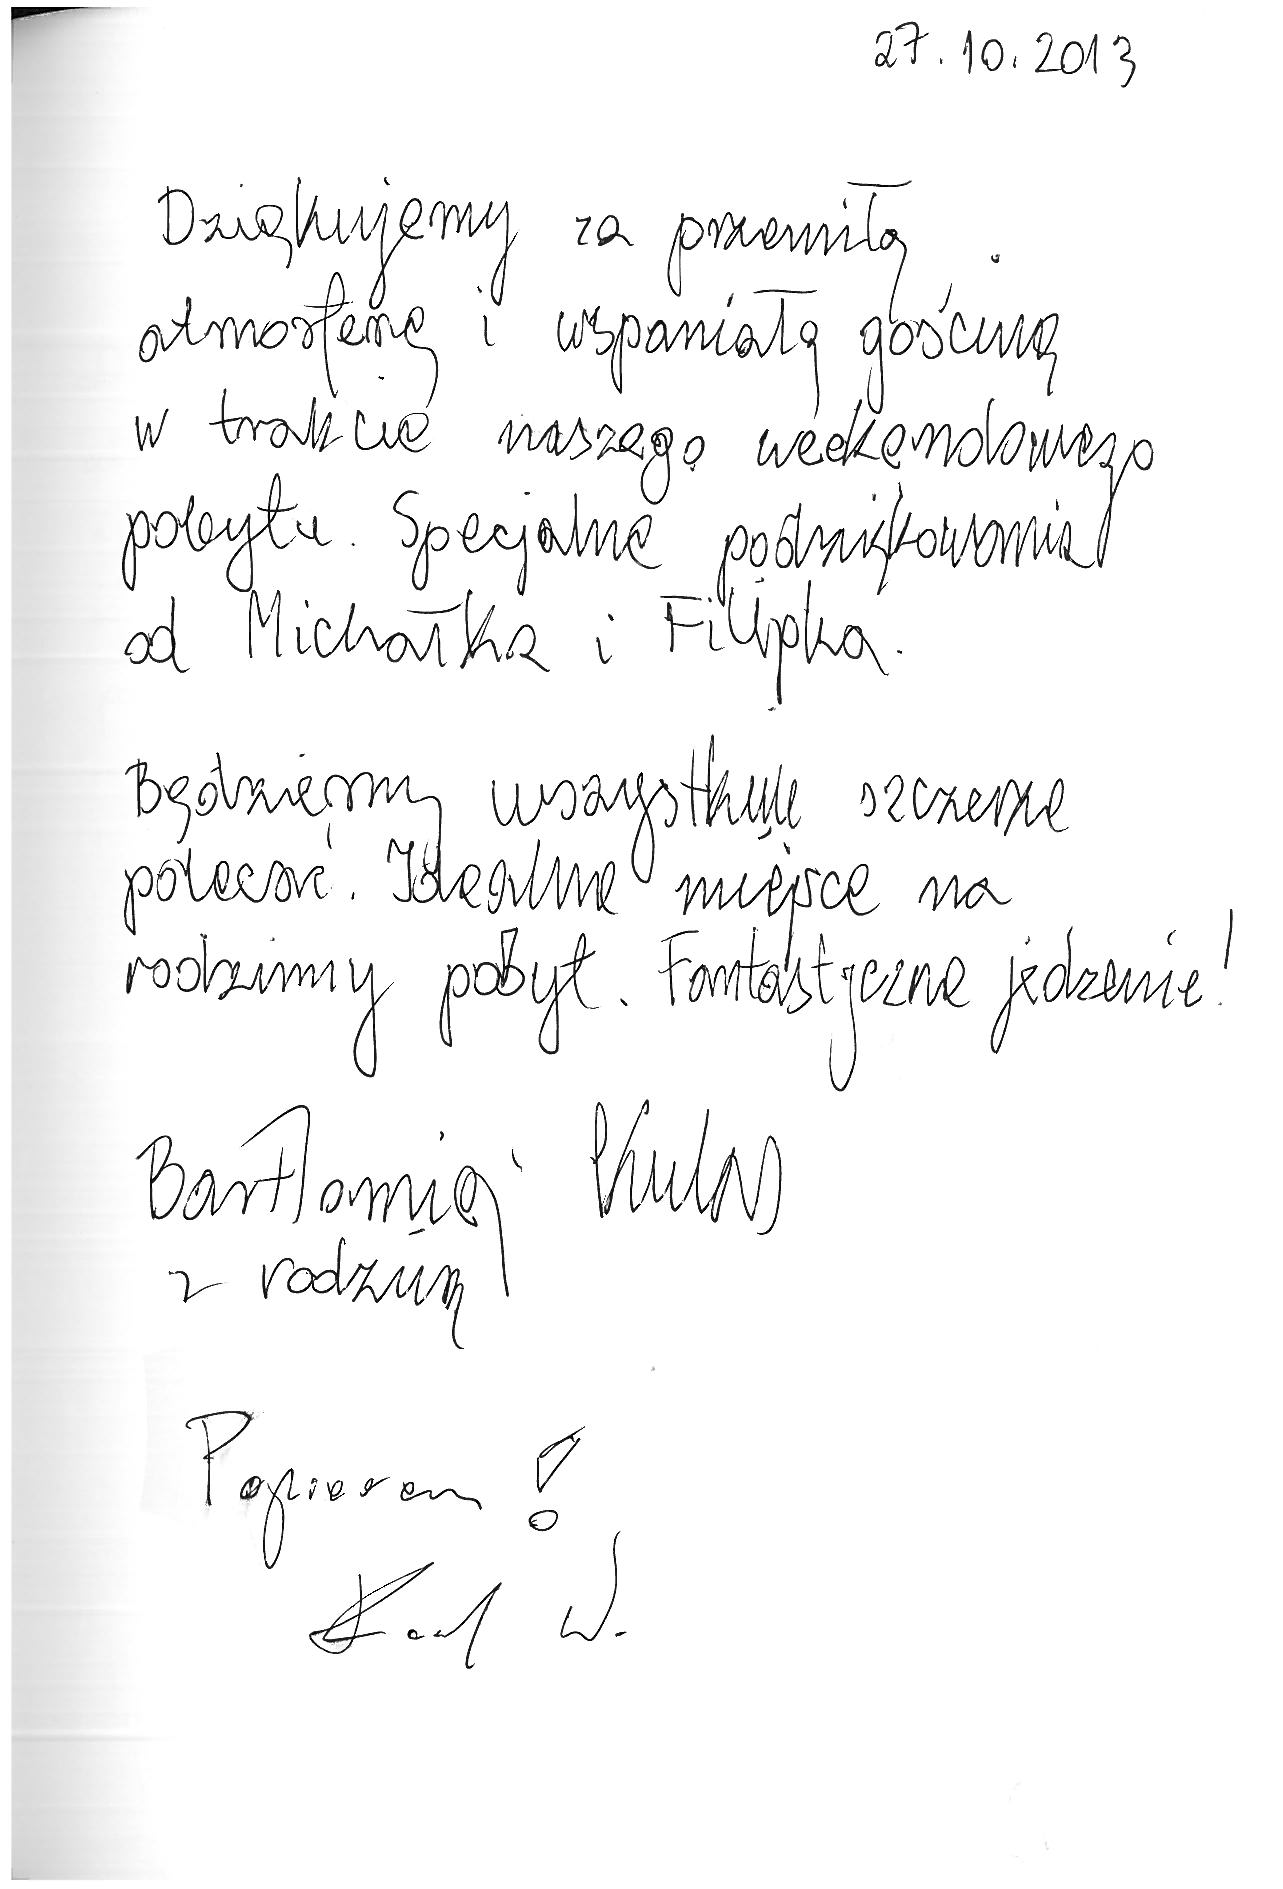 27.10.2013
Dziękujemy za przemiłą
atmosferę i wspaniałą gościnę
w trakcie naszego weekendowego
pobytu. Specjalne podziękowania
od Michałka i Filipka.
Będziemy wszystkim szczerze
polecać. Idealne miejsce na
rodzinny pobyt. Fantastyczne jedzenie!
Bartłomiej
z rodziną
Popieram!
W.